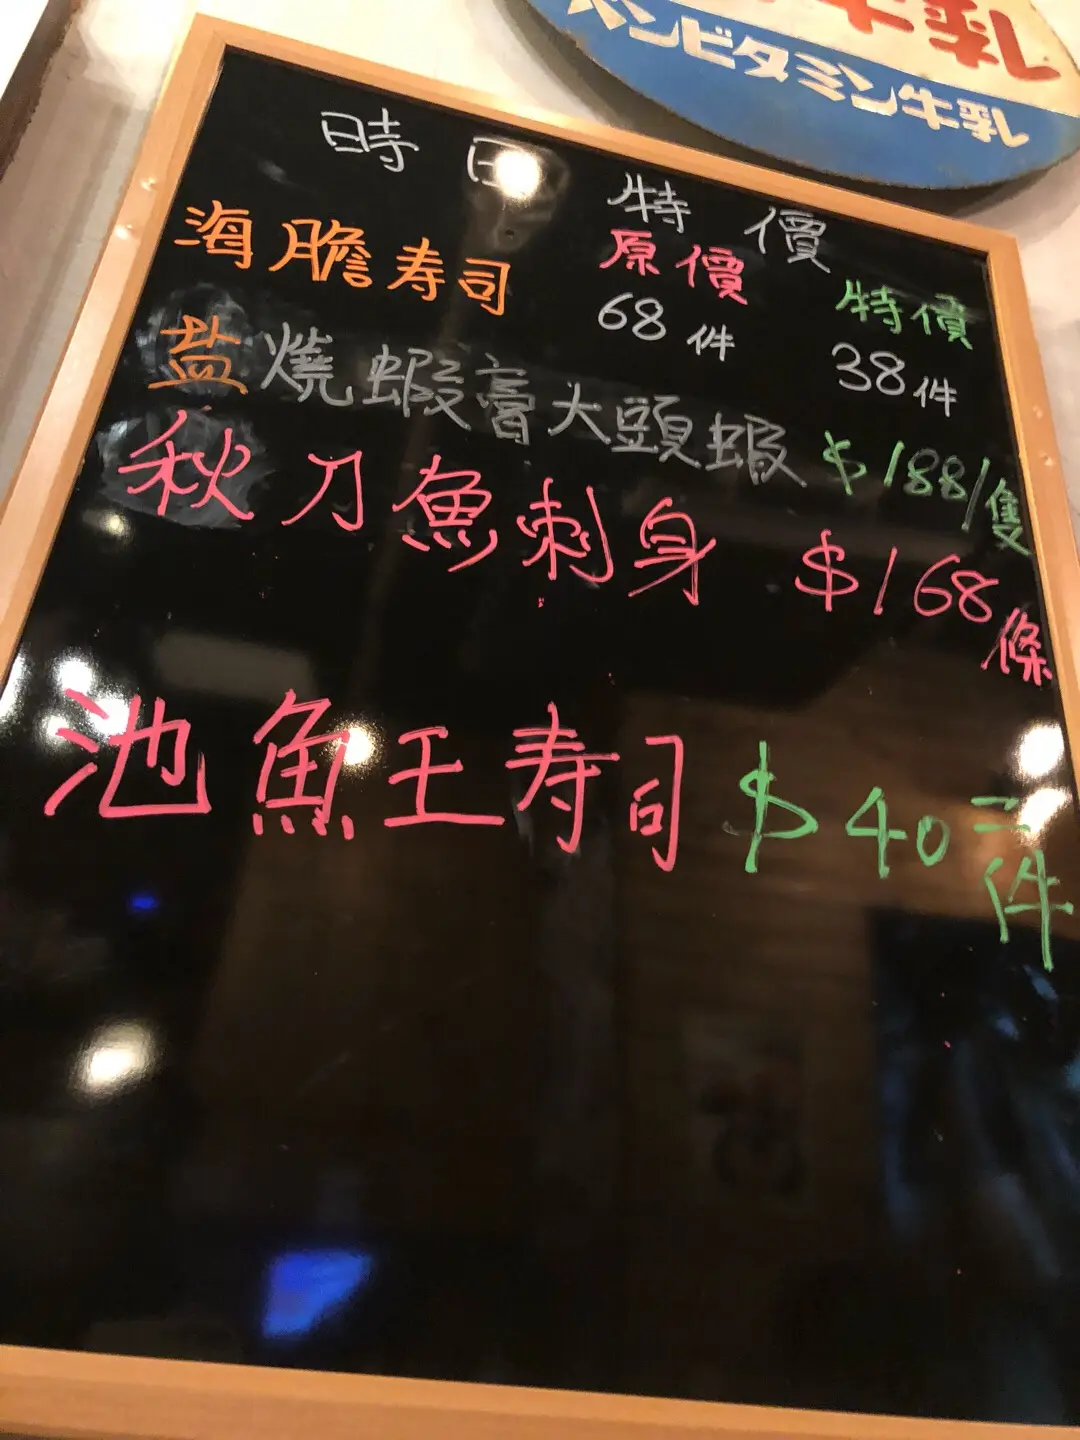 牛乳
ンビタミン牛乳
時日 特價
海膽寿司 原價 68件 特價 38件
盐燒蝦膏大頭蝦 $188/隻
秋刀魚刺身 $168/條
池魚王寿司 $40二件